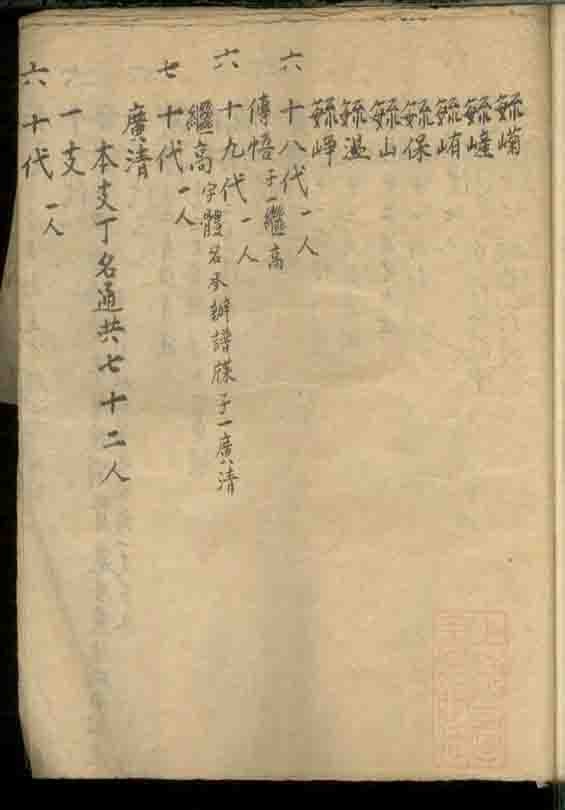 毓𡹇
毓嶂
毓峟
毓保
毓山
毓温
毓峄
六十八代一人
傳悟子一繼高
六十九代一人
繼高字體名承辦譜牒子一廣清
七十代一人
廣清
本支丁名通共七十二人
一支
六十代一人